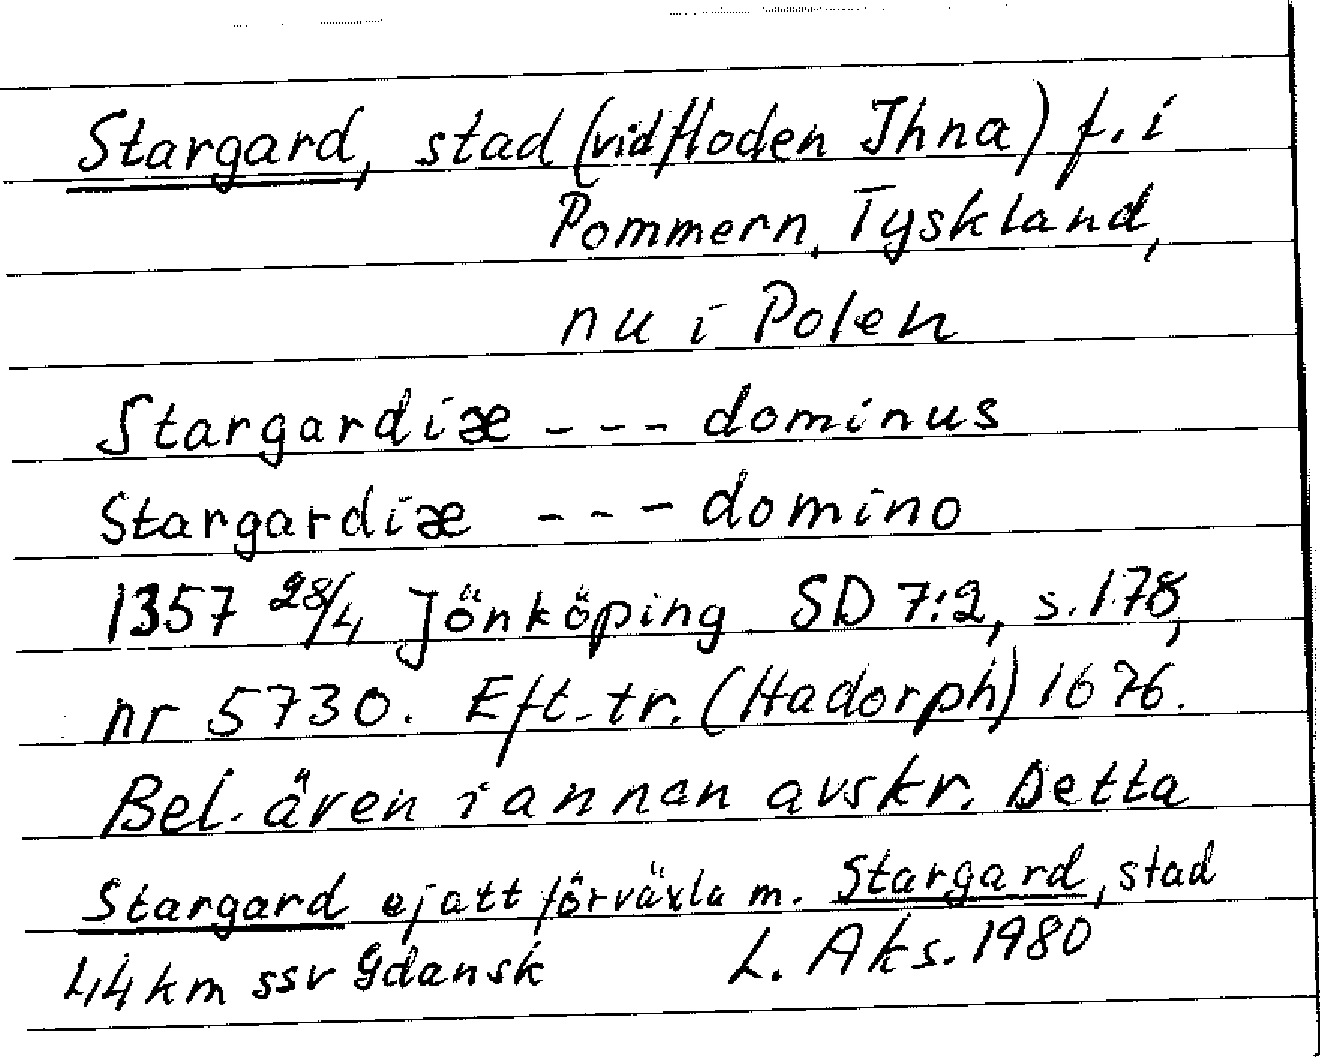 Stargard, stad (vid floden Ihna) f. i
Pommern, Tyskland,
nu i Polen
Stargardiæ - - - dominus
Stargardiæ - - - domino
1357 28/4 Jönköping SD 7:2, s. 178,
nr 5730. Eft. tr. (Hadorph) 1676.
Bel. även i annan avskr. Detta
Stargard ej att förväxla m. Stargard, stad
44 km ssv Gdansk L. Aks. 1980